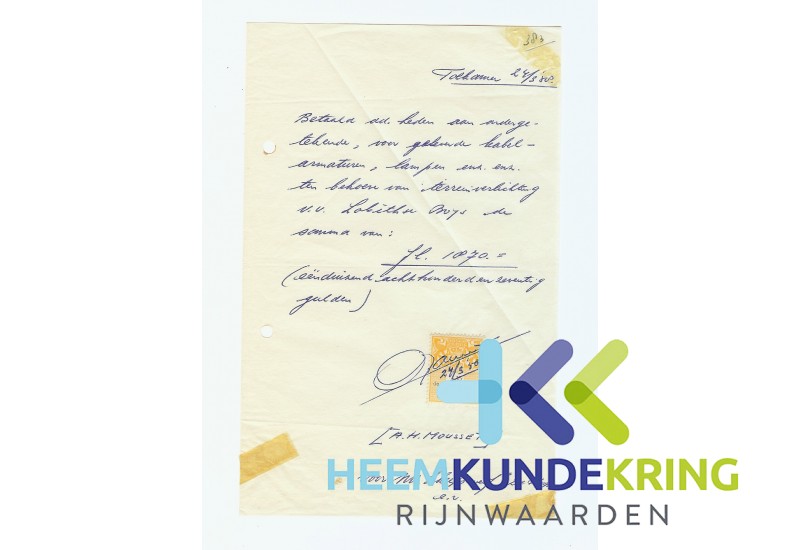 383
Tolkamer 24/3 '58.
Betaald add. heden aan onderge-
tekende, voor geleverde kabel-
armaturen, lampen enz. enz.
ten behoeve van terreinverlichting
v.v. Lobithse Boys de
somma van:
fl. 1870.=
(eénduizend achthonderd en zeventig
gulden)
24/3 '58
[A.H. MOUSSET]
voor
e.v.
HEEMKUNDEKRING
RIJNWAARDEN